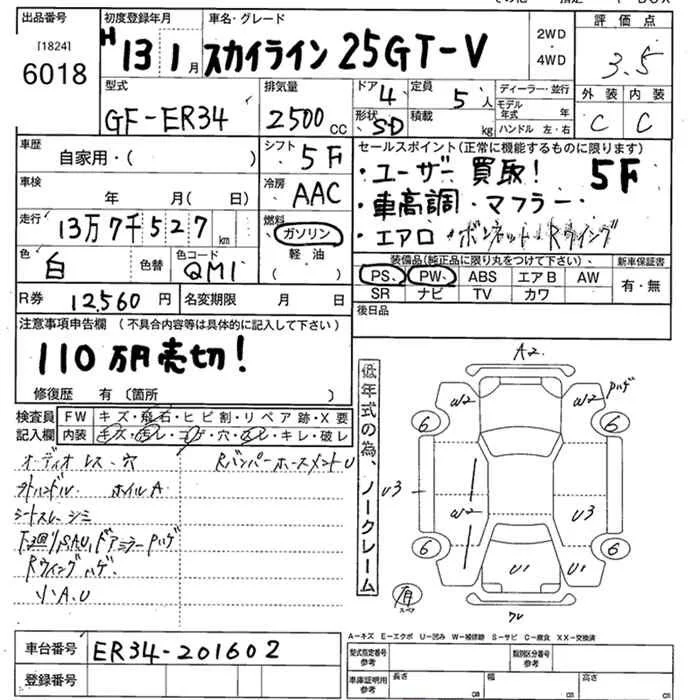 出品番号 初度登録年月 車名・グレード 2WD・4WD 評価点
[1824] 6018 H 13 1月 スカイライン 25GT-V 3.5
型式 排気量 ドア 4 定員 5人 ディーラー・並行 外装 内装
GF-ER34 2500cc 形状 S・D 積載 kg モデル年式 年 C C
ハンドル 左・右
車歴 自家用・( ) シフト 5F セールスポイント(正常に機能するものに限ります)
・ユーザー買取! 5F
車検 年 月(日) 冷房 AAC
・車高調・マフラー・
走行 13万7千527km 燃料 ガソリン
・エアロ ボンネット Rウイング
軽油
( )
色 白 色替 色コード QM1
装備品(純正品に限り丸をつけて下さい) 新車保証書
PS PW ABS エアB AW 有・無
SR ナビ TV カワ
R券 12,560円 名変期限 月 日 後日品
注意事項申告欄(不具合内容等は具体的に記入して下さい)
110万円売切!
修復歴 有〔箇所 〕
検査員記入欄 FW キズ・飛石・ヒビ割・リペア跡・X要
内装 キズ・汚レ・コゲ・穴・スレ・キレ・破レ
オーディオレス、穴 Rバンパー
ホイルA
シートスレ、シミ
ドアミラーハゲ
Rウイングハゲ
小A.U
低年式の為、ノークレーム
A2
W2 W2 ハゲ
6 6
U3 W2 U3
6 6
U1 U1
有 スペア
A-キズ E-エクボ U-凹み W-補修跡 S-サビ C-腐食 XX-交換済
車台番号 ER34-201602
型式指定番号 参考 類別区分番号 参考
登録番号
車庫証明用 参考 長さ cm 幅 cm 高さ cm